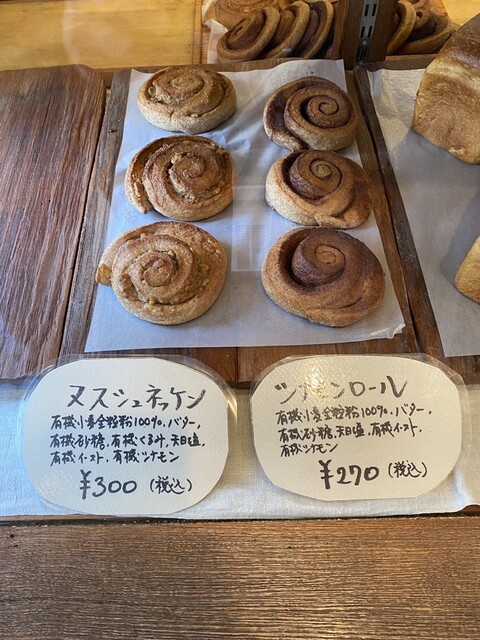 ヌスシュネッケン
有機小麦全粒粉100%、バター、
有機砂糖、有機くるみ、天日塩、
有機イースト、有機シナモン
¥300 (税込)
シナモンロール
有機小麦全粒粉100%、バター、
有機砂糖、天日塩、有機イースト、
有機シナモン
¥270 (税込)